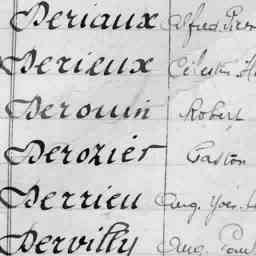 Deriaux Alfred Pierre
Derieux Célestin
Derouin Robert
Derozier Gaston
Derrieu Aug. Yves
Dervilly Aug. Paul